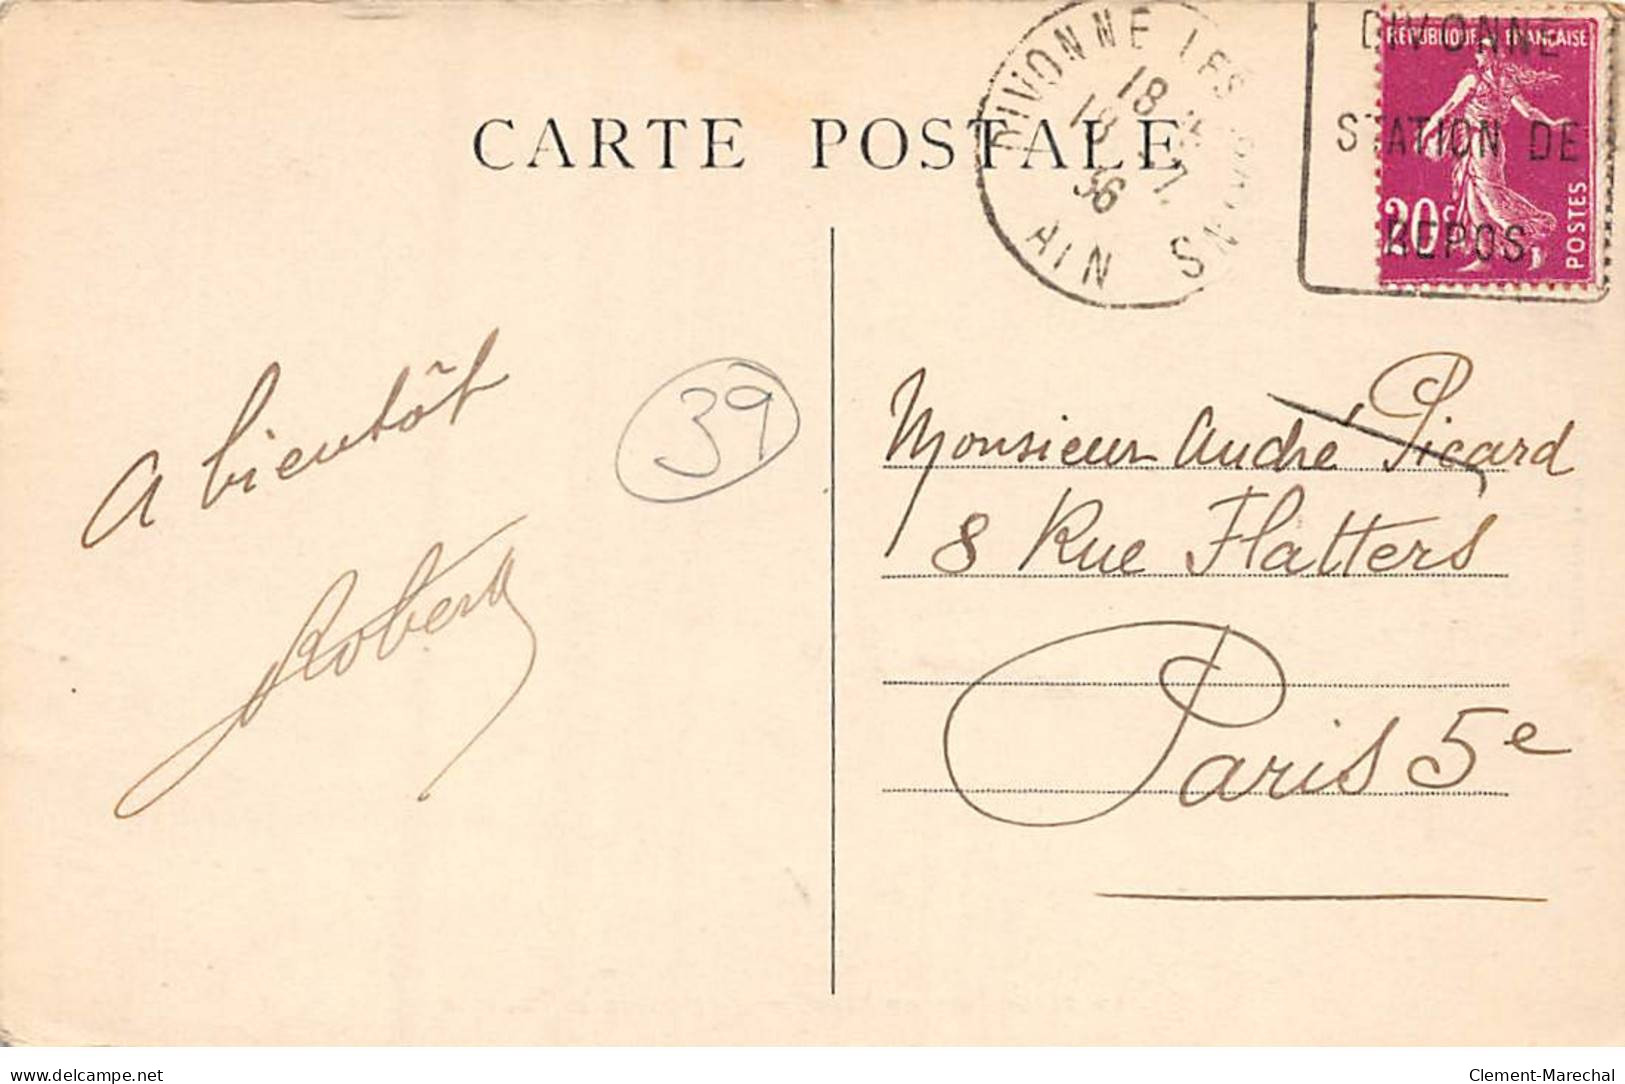 CARTE POSTALE
DIVONNE LES BAINS
18 H
18 7
36
AIN
DIVONNE
STATION DE
REPOS
REPUBLIQUE FRANÇAISE
20c
POSTES
A bientôt
Robert
39
Monsieur André Picard
8 Rue Flatters
Paris 5e
delcampe.net
Clement-Marechal